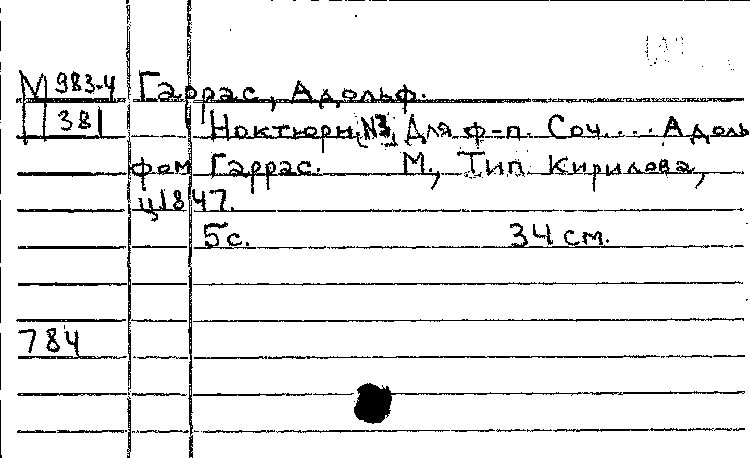 М 983-4 Гаррас, Адольф.
381 Ноктюрн, №3, Для ф-п. Соч.... Адоль
фом Гаррас. М., Тип. Кирилова,
ц1847.
5с. 34 см.
784